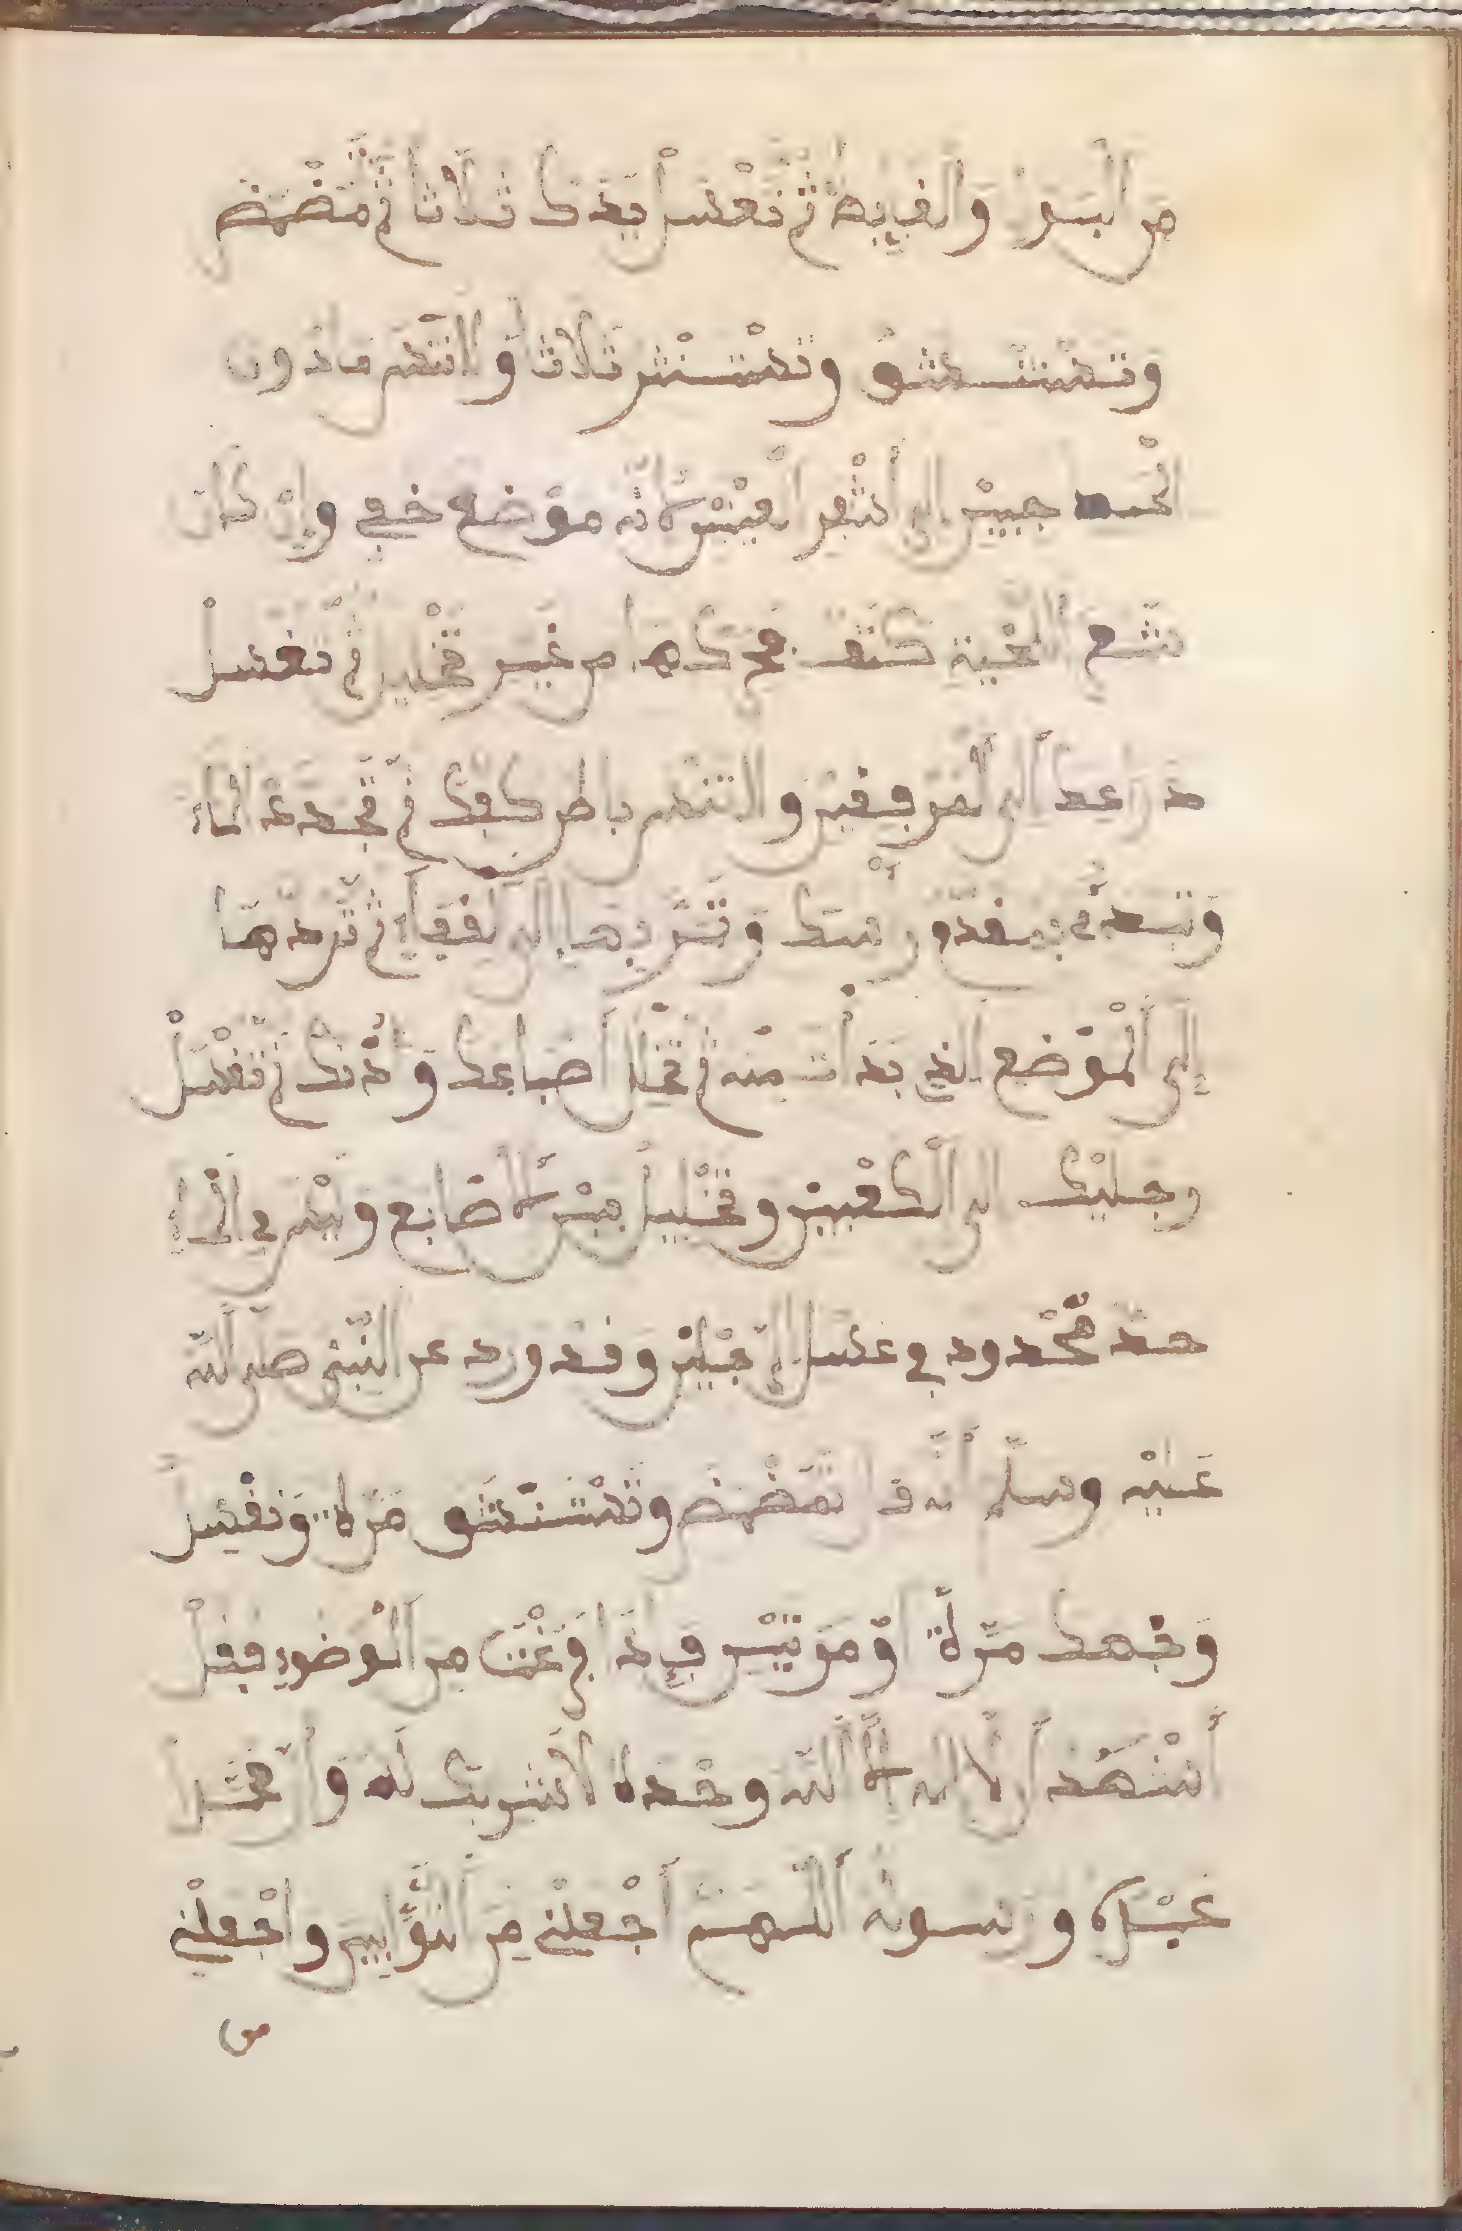 من البول والغايط ثم تغسل يديك ثلاثا ثم تمضمض
وتستنشق وتستنثر ثلاثا ولا تتهم ما دون
الى أشفر العين لأنه موضع خفي وإن كان
اللحية كثيف فحركها من غير تخليل ثم تغسل
ذراعك الى المرفقين ولا تتهم باطن كفك ثم تجدد الماء
وتبدئ بمقدم رأسك وتمر بها الى القفا ثم تردها
إلى الموضع الذي بدأت منه ثم تخلل أصابعك وأذنك ثم تغسل
رجليك الى الكعبين وتخليل بين الأصابع وليس في الماء
حد محدود في غسل الرجلين وقد ورد عن النبي صلى الله
عليه وسلم أنه قال تمضمض وتستنشق مرة وتغسل
وجهك مرة او مرتين فإذا فرغت من الوضوء فقل
أشهد أن لا اله إلا الله وحده لا شريك له وأن محمدا
عبده ورسوله اللهم اجعلني من التوابين واجعلني
من